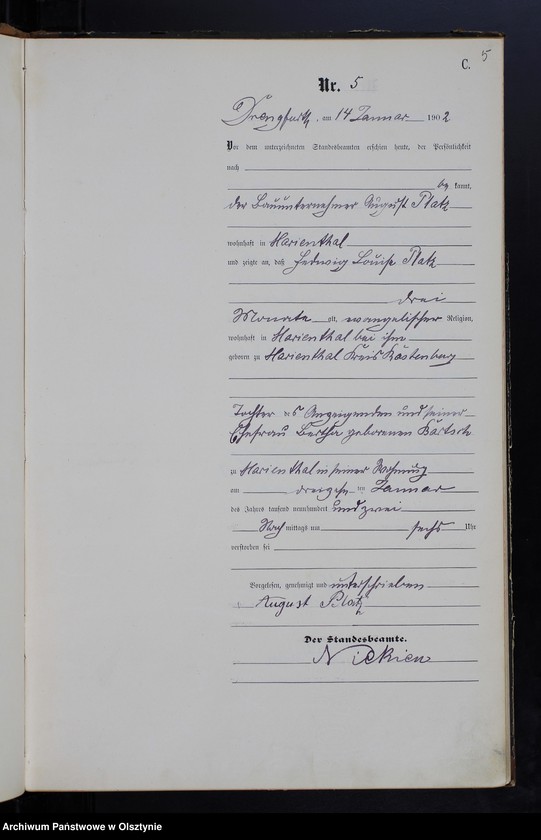 5
C.
Nr. 5
Drengfurth, am 14 Januar 1902
Vor dem unterzeichneten Standesbeamten erschien heute, der Persönlichkeit
nach
be kannt,
der Bauunternehmer August Platz
wohnhaft in Marienthal
und zeigte an, daß Hedwig Louise Platz
drei
Monate alt, evangelischer Religion,
wohnhaft in Marienthal bei ihm
geboren zu Marienthal Kreis Rastenburg
Tochter des Anzeigenden und seiner
Ehefrau Bertha geborenen Bartsch
zu Marienthal in seiner Wohnung
am dreizehn ten Januar
des Jahres tausend neunhundert und zwei
Nach mittags um sechs Uhr
verstorben sei
Vorgelesen, genehmigt und unterschrieben
August Platz
Der Standesbeamte.
Nickien
Archiwum Państwowe w Olsztynie